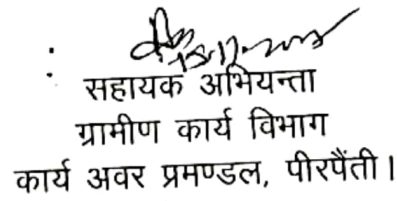 :
सहायक अभियन्ता
ग्रामीण कार्य विभाग
कार्य अवर प्रमण्डल, पीरपैंती।